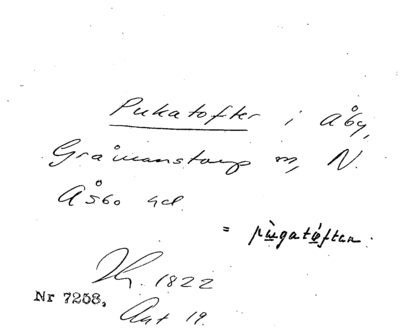 Pukatofter i Åby,
Gråmanstorp sn, N.
Åsbo hd.
= pùgatóftan.
1822
Nr 7208, Akt 19.